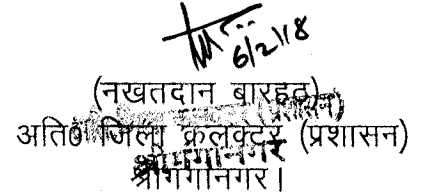 6/2/18
(नखतदान बारहठ)
अति० जिला कलक्टर (प्रशासन)
श्रीगंगानगर।